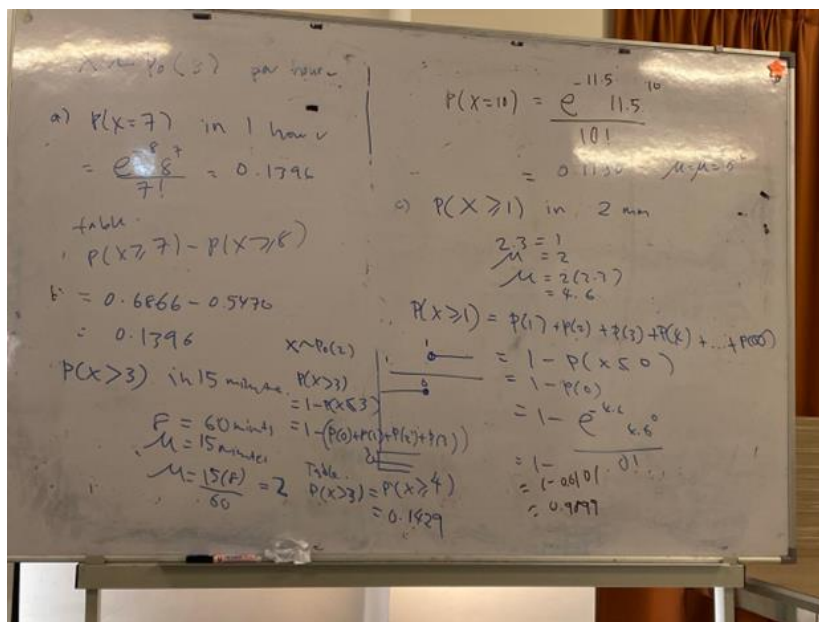 X ~ Po( ) per hour
a) P(X=7) in 1 hour
= e^-8 8^7 / 7! = 0.1396
table.
P(X≥7) - P(X≥8)
b. = 0.6866 - 0.5470
= 0.1396
P(X>3) in 15 minutes.
8 = 60 minutes
μ = 15 minutes
μ = 15(8) / 60 = 2
X~Po(2)
P(X>3)
= 1-P(X≤3)
= 1-(P(0)+P(1)+P(2)+P(3))
Table.
P(X>3) = P(X≥4)
= 0.1429
P(X=10) = e^-11.5 11.5^10 / 10!
= 0.1130
c) P(X≥1) in 2 mm
2.3 = 1
μ = 2
μ = 2(2.3)
= 4.6
P(X≥1) = P(1)+P(2)+P(3)+P(4)+...+P(∞)
= 1 - P(X≤0)
= 1 - P(0)
= 1 - e^-4.6 4.6^0 / 0!
= 1-
= 1-0.0101
= 0.9899